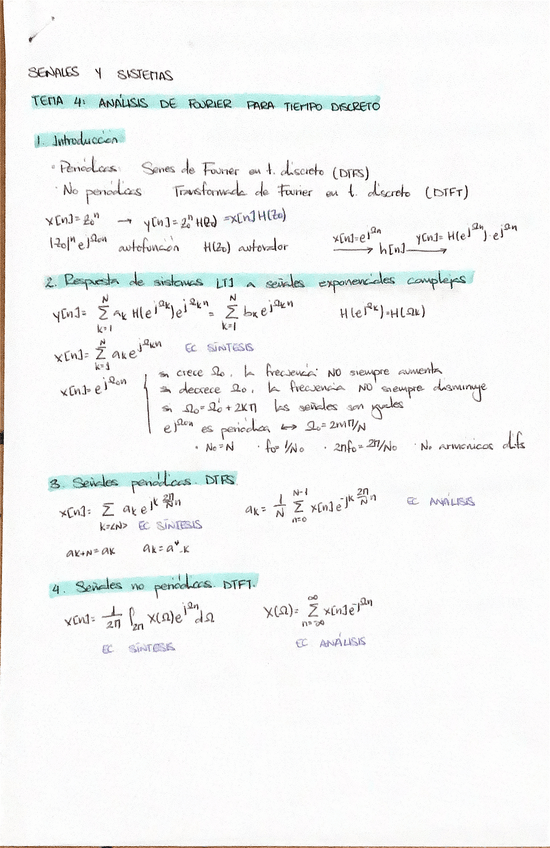 SEÑALES Y SISTEMAS
TEMA 4: ANÁLISIS DE FOURIER PARA TIEMPO DISCRETO
1. Introducción
· Periódicas: Series de Fourier en t. discreto (DTFS)
· No periódicas Transformada de Fourier en t. discreto (DTFT)
x[n]=z₀ⁿ → y[n]=z₀ⁿ H(z₀) =x[n]H(z₀)
|z₀|ⁿ e^{jΩ₀n} autofunción H(z₀) autovalor x[n]=e^{jΩn} → h[n] → y[n]=H(e^{jΩn})·e^{jΩn}
2. Respuesta de sistemas LTI a señales exponenciales complejas
y[n]= Σ_{k=1}^{N} a_k H(e^{jΩk})e^{jΩkn} = Σ_{k=1}^{N} b_k e^{jΩkn} H(e^{jΩk})=H(Ωk)
x[n]= Σ_{k=1}^{N} a_k e^{jΩkn} EC SÍNTESIS
x[n]=e^{jΩ₀n}
si crece Ω₀, la frecuencia NO siempre aumenta
si decrece Ω₀, la frecuencia NO siempre disminuye
si Ω₀=Ω₀'+2kπ las señales son iguales
e^{jΩ₀n} es periódica ↔ Ω₀=2πm/N
· N₀=N · f₀=1/N₀ · 2πf₀=2π/N₀ · N₀ armónicos difs
3. Señales periódicas. DTFS
x[n]= Σ_{k=<N>} a_k e^{jk 2π/N n} a_k = 1/N Σ_{n=0}^{N-1} x[n]e^{-jk 2π/N n} EC ANÁLISIS
EC SÍNTESIS
a_{k+N}=a_k a_k=a*_{-k}
4. Señales no periódicas. DTFT.
x[n]= 1/2π ∫_{2π} X(Ω)e^{jΩn}dΩ X(Ω)= Σ_{n=-∞}^{∞} x[n]e^{-jΩn}
EC SÍNTESIS EC ANÁLISIS